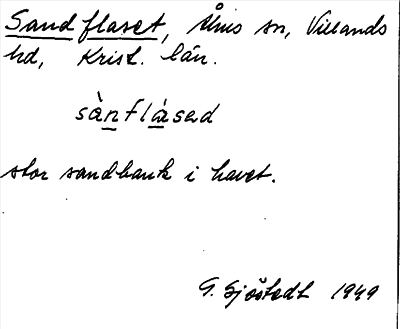 Sandflaset, Åhus sn, Villands
hd, Krist. län.
sànflásəd
stor sandbank i havet.
G. Sjöstedt 1949